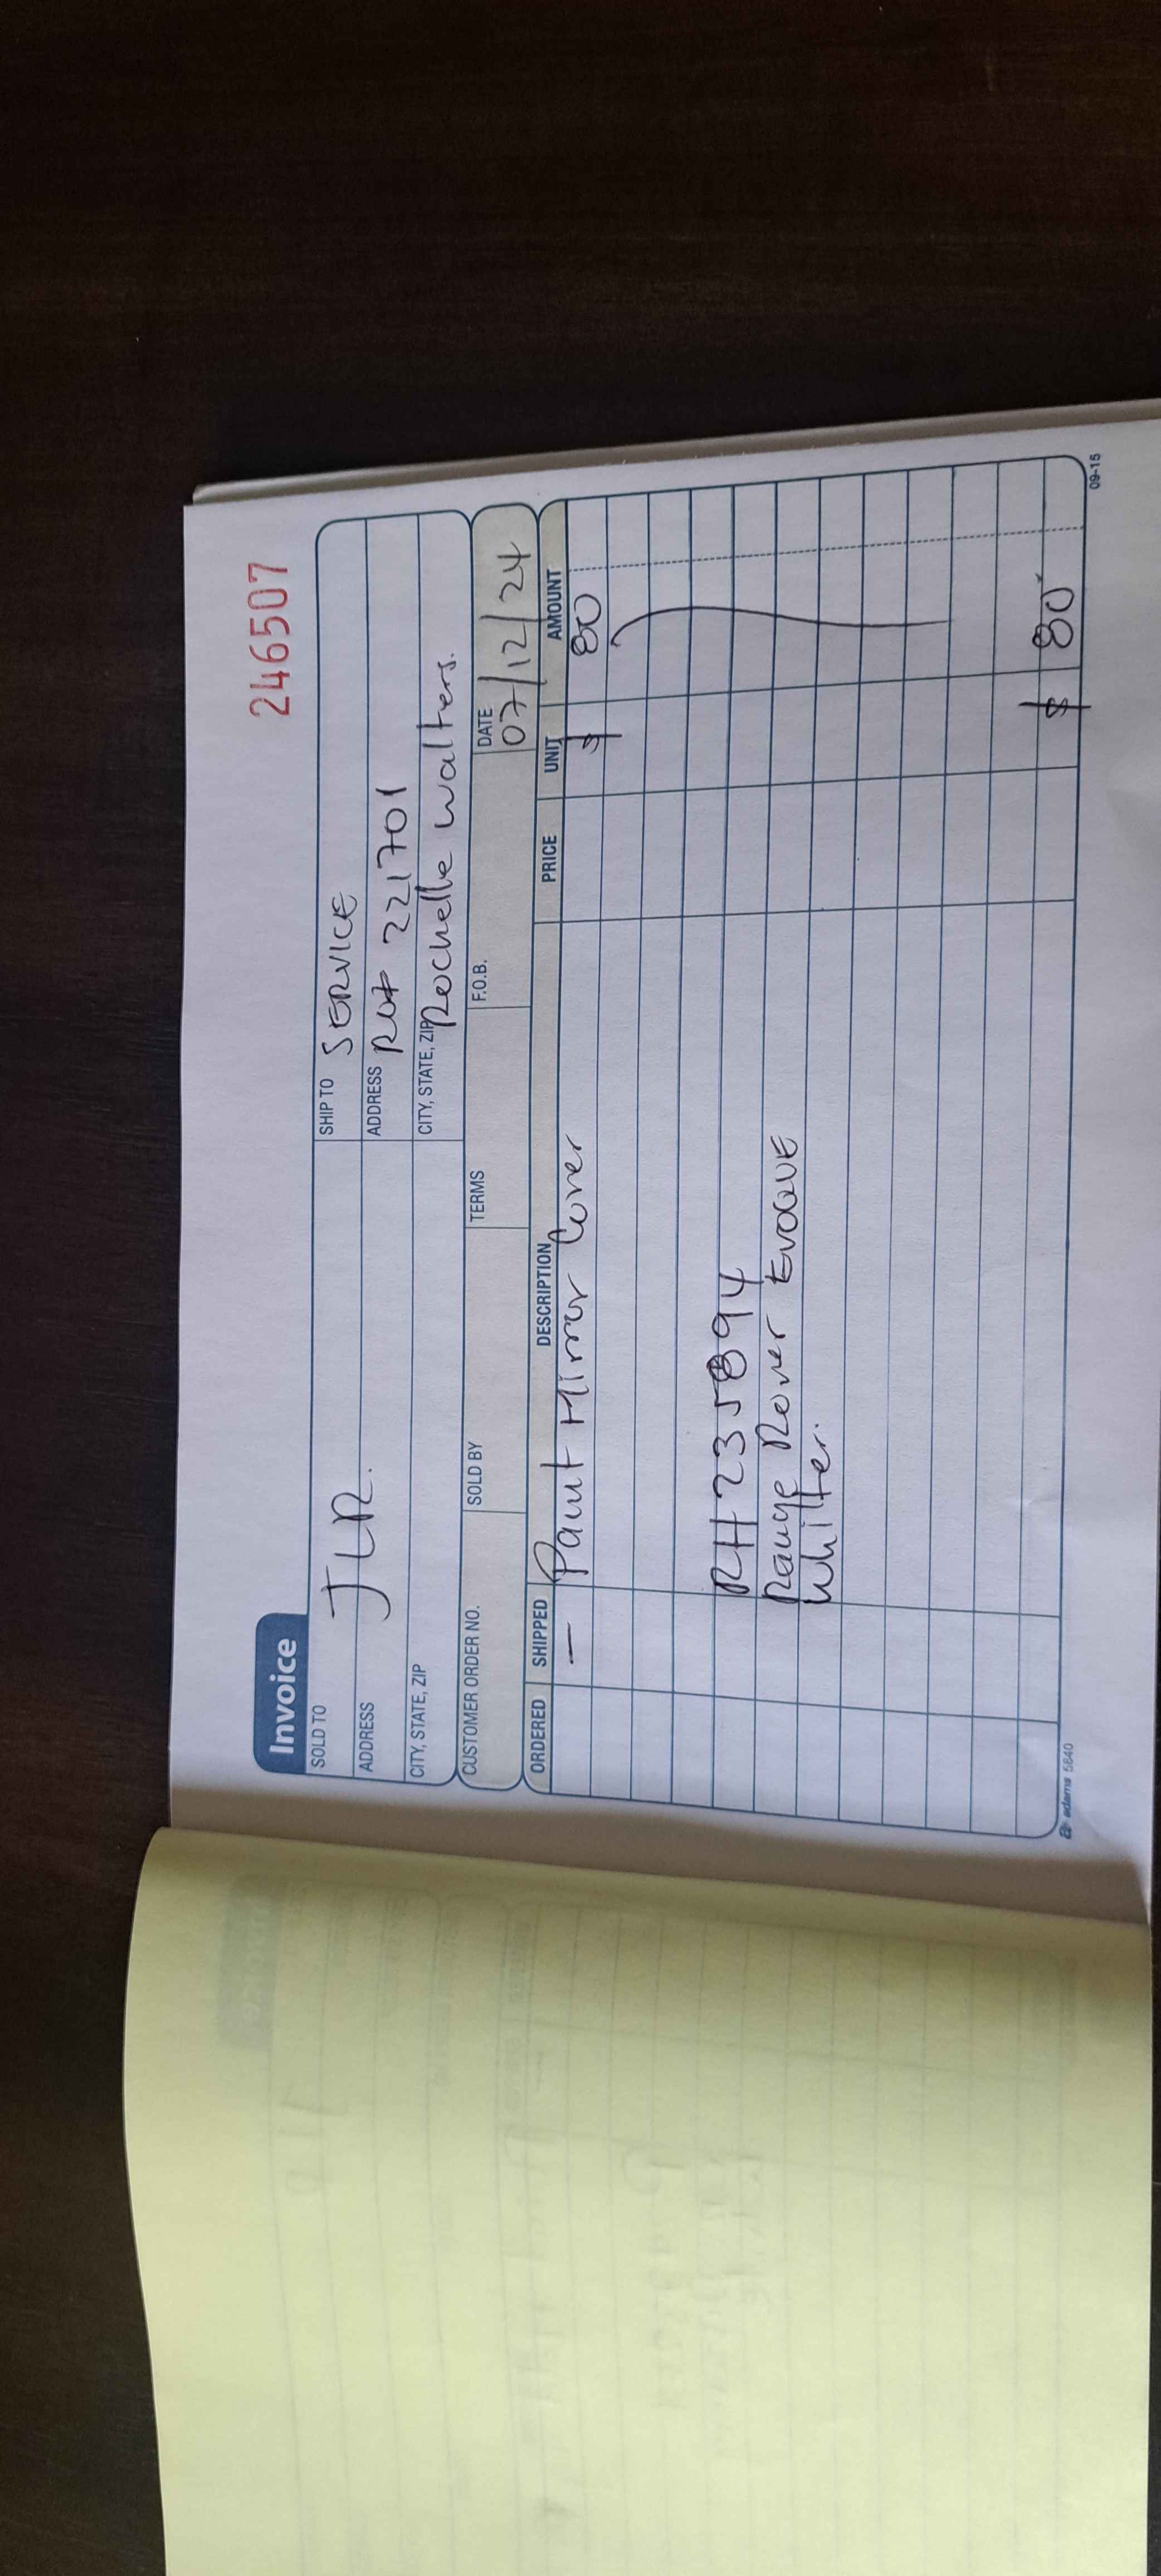 246507
Invoice
SOLD TO JLR.
SHIP TO SERVICE
ADDRESS
ADDRESS RO# 221701
CITY, STATE, ZIP
CITY, STATE, ZIP Rochelle Walters.
CUSTOMER ORDER NO. SOLD BY TERMS F.O.B. DATE 07/12/24
ORDERED SHIPPED DESCRIPTION PRICE UNIT AMOUNT
— Paint Mirror Cover $ 80
RH235894
Range Rover EVOQUE
Whilter.
$ 80
adams 5840
09-15